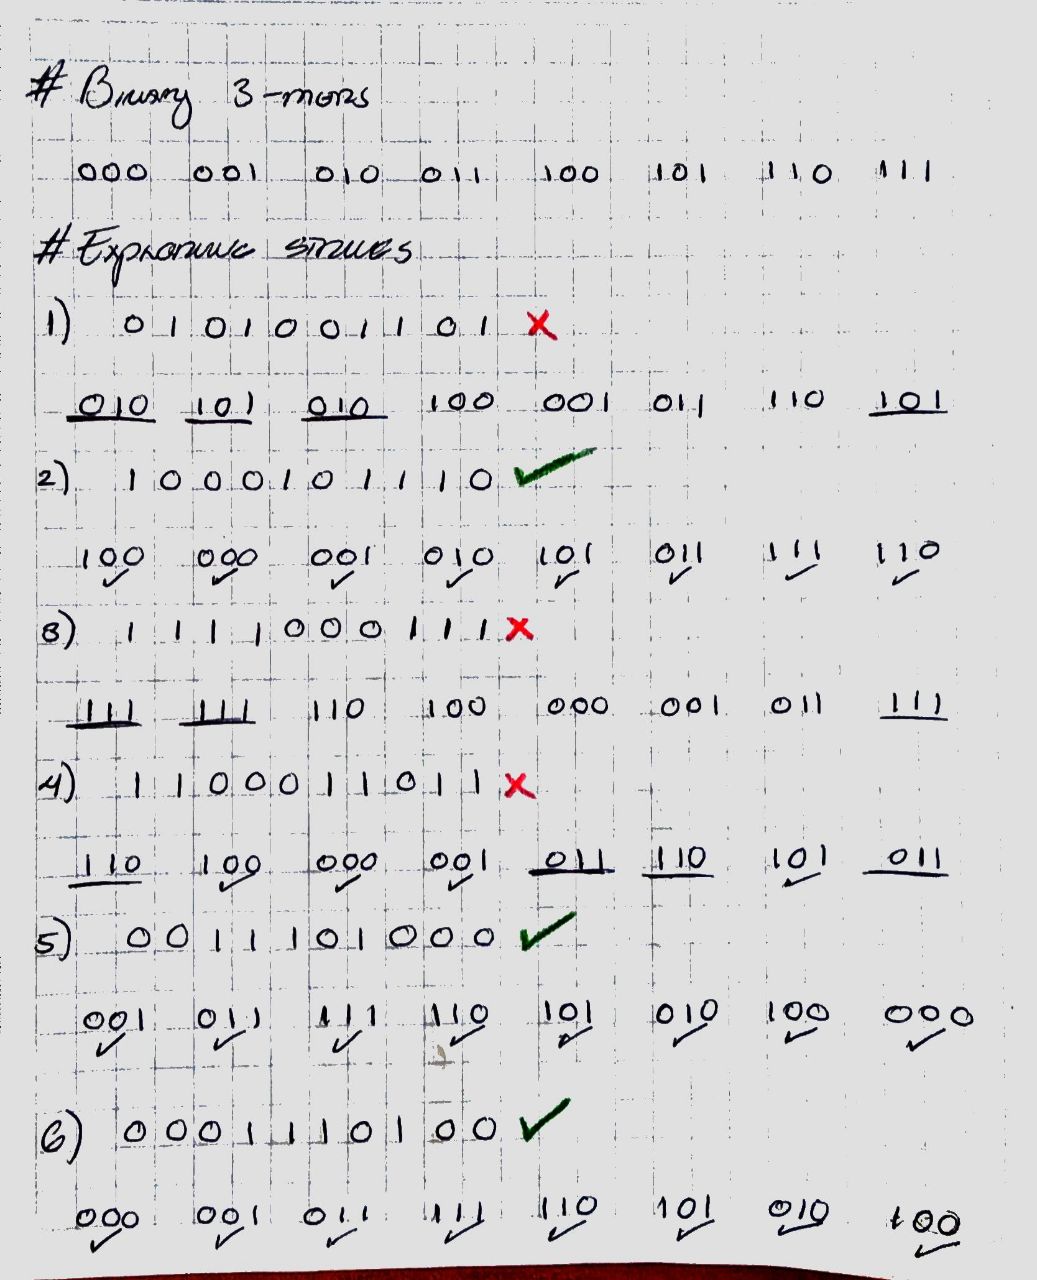 # Binary 3-mers
000 001 010 011 100 101 110 111
# Exploring strings
1) 0101001101 ✗
010 101 010 100 001 011 110 101
2) 1000101110 ✓
100 000 001 010 101 011 111 110
3) 1111000111 ✗
111 111 110 100 000 001 011 111
4) 1100011011 ✗
110 100 000 001 011 110 101 011
5) 0011101000 ✓
001 011 111 110 101 010 100 000
6) 0001110100 ✓
000 001 011 111 110 101 010 100